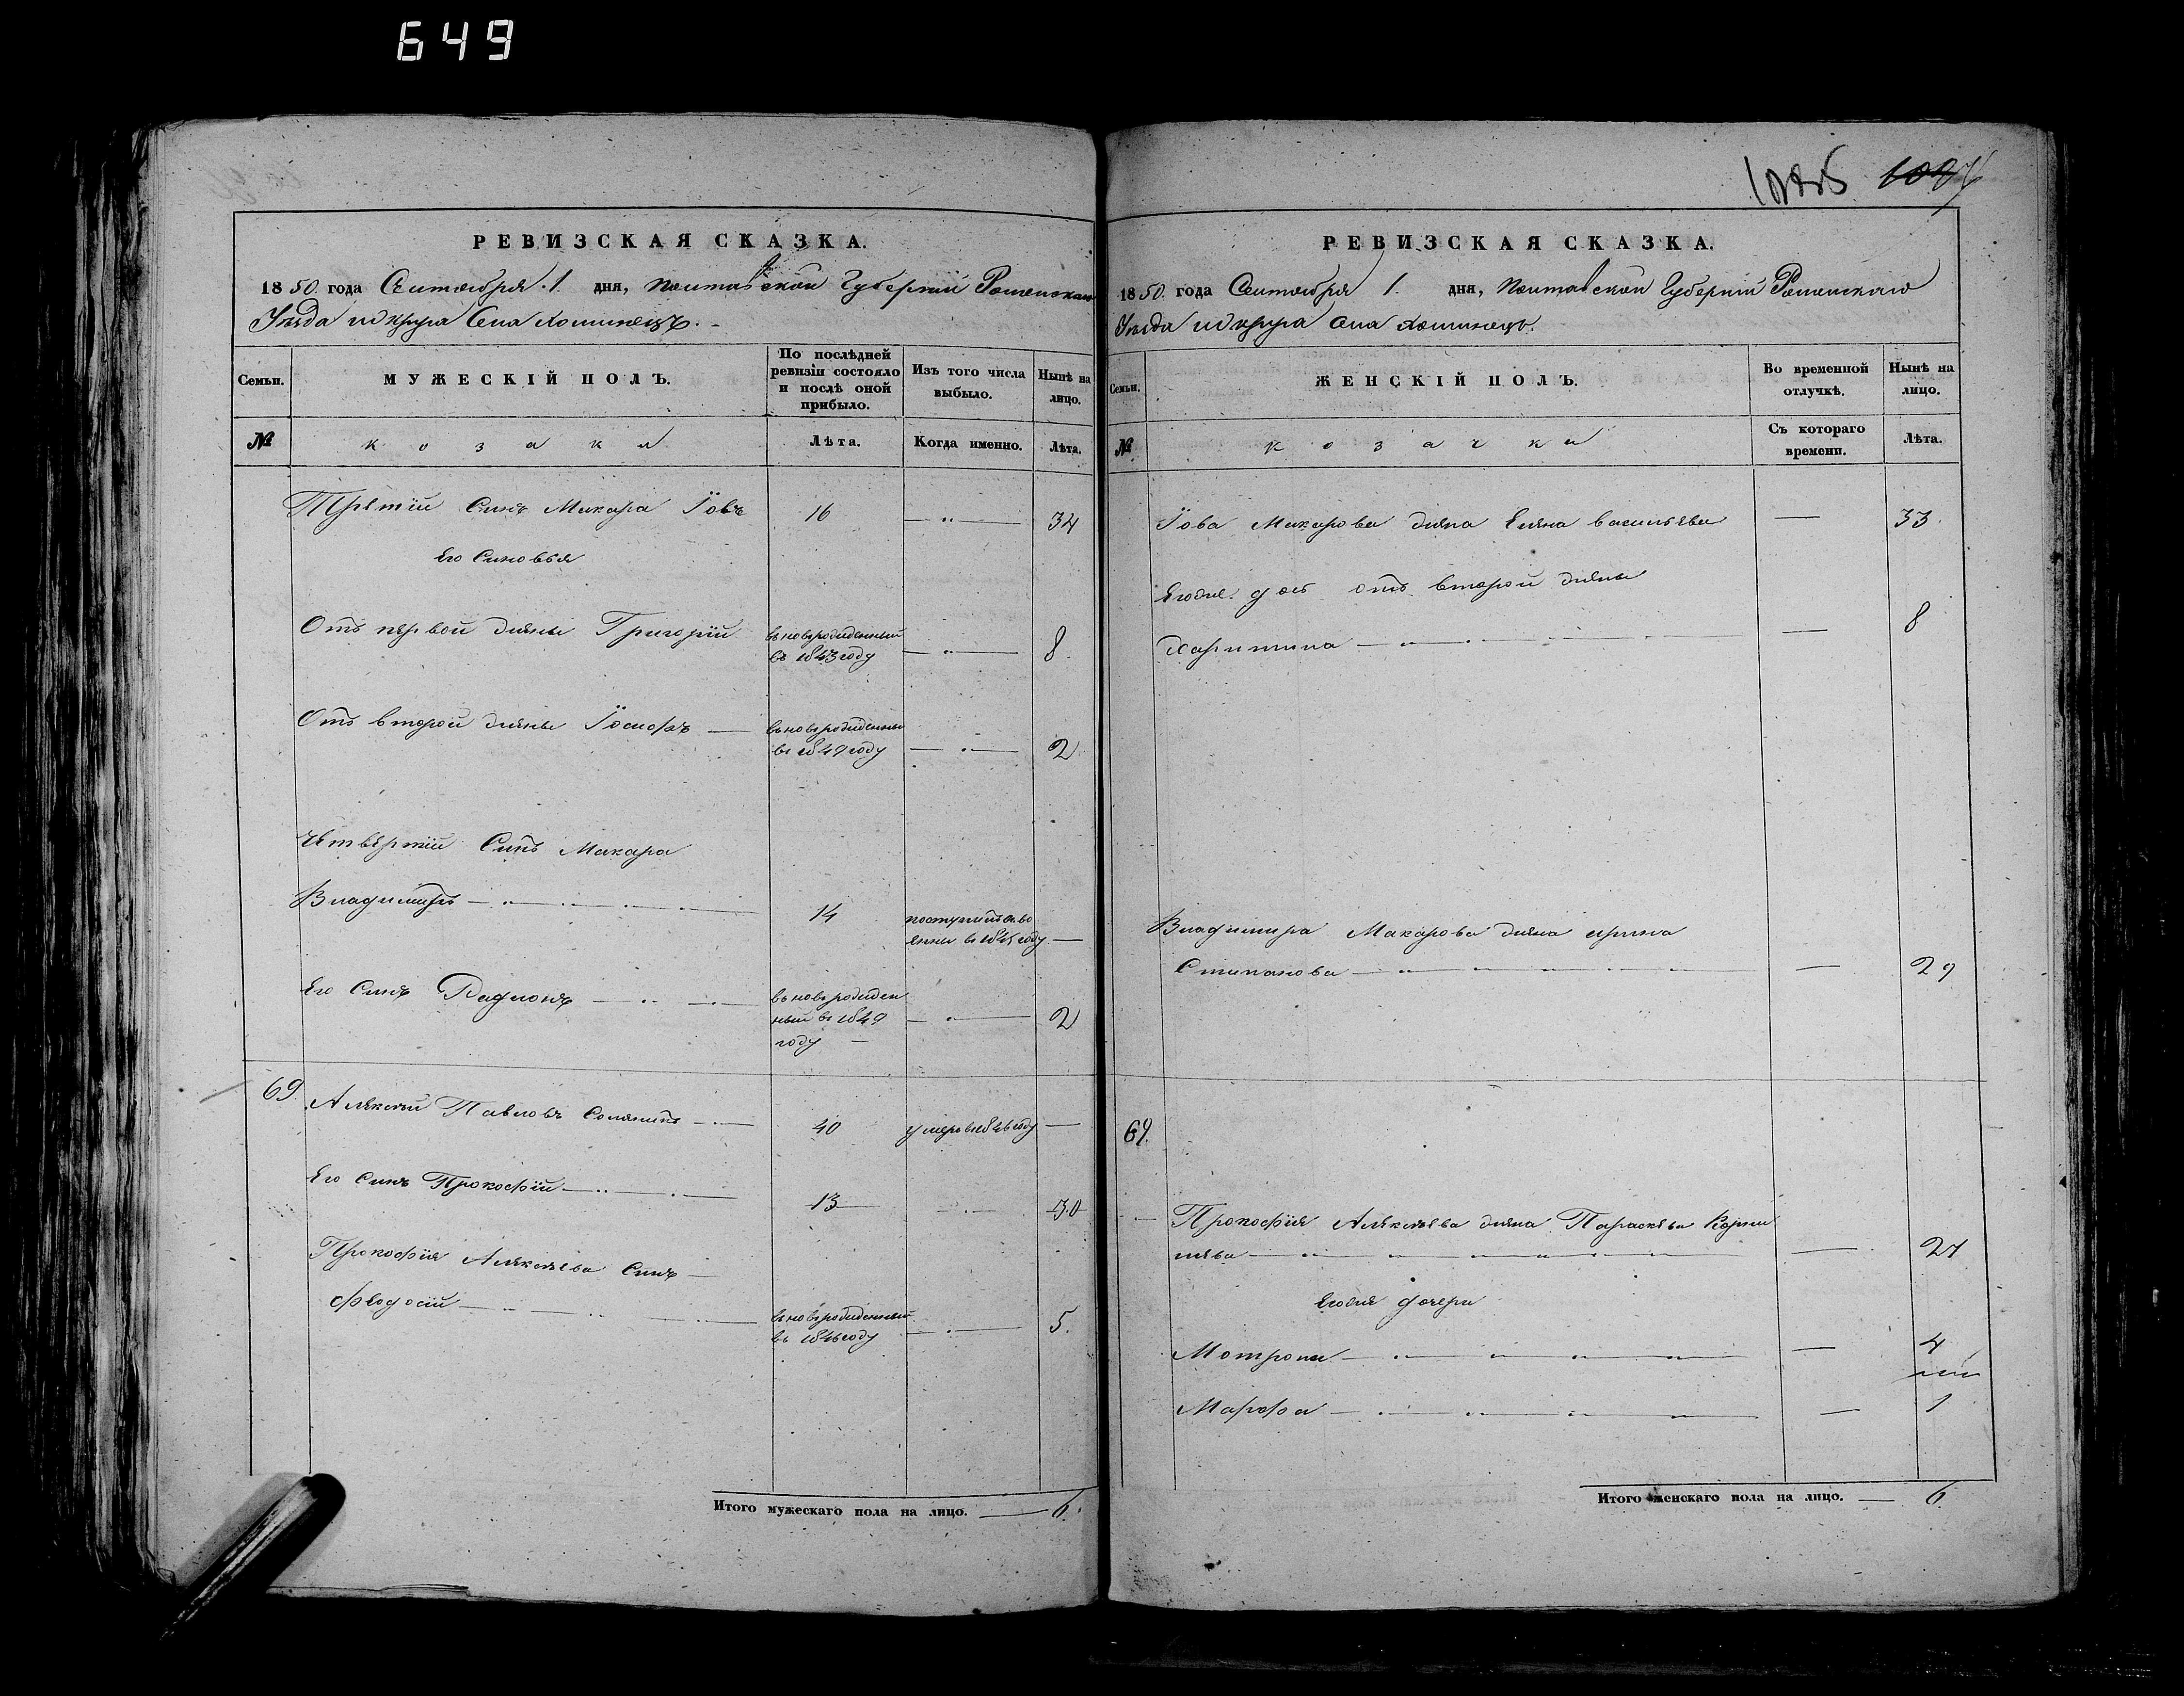 649
РЕВИЗСКАЯ СКАЗКА.
1850. года Сентября 1. дня, Полтавской Губерніи Роменскаго
Уезда и округа Села Хоминецъ.
Семьи.
МУЖЕСКІЙ ПОЛЪ.
По послѣдней ревизіи состояло и послѣ оной прибыло.
Изъ того числа выбыло.
Нынѣ на лицо.
№
козаки
Лѣта.
Когда именно.
Лѣта.
Третій Синъ Макара Іовъ 16 — 34
Его Синовья
Отъ первой жены Григорій вьновьрожденный
въ 1843 году — 8
Отъ второй жены Іосифъ — вьновьрожденны
въ 1849 году — 2
Четвертій Синъ Макара
Владимиръ — 14
году —
Его Синъ Радионъ — вьновьрожден
ный въ 1849 — 2
году
69. Алексей Павловъ — 40 умеръ въ 1846 году —
Его Синъ Прокофій — 13 — 30
Прокофія Алексеева Синъ —
Феодосій — вьновьрожденный
въ 1846 году — 5.
Итого мужескаго пола на лицо. — 6.
РЕВИЗСКАЯ СКАЗКА.
1850. года Сентября 1. дня, Полтавской Губерніи Роменскаго
Уезда и округа Села Хоминецъ.
Семьи.
ЖЕНСКІЙ ПОЛЪ.
Во временной отлучкѣ.
Нынѣ на лицо.
№
козачки
Съ котораго времени.
Лѣта.
Іова Макарова жена Елена Васильева — 33.
Егоже дочь отъ второй жены
Харитина — 8
Владимира Макарова жена Ирина
Степанова — 29
69.
Прокофія Алексеева жена Параскева Корни
леева — 27
Егоже дочери
Мотрона — 4
Марфа — 1
Итого женскаго пола на лицо. — 6.